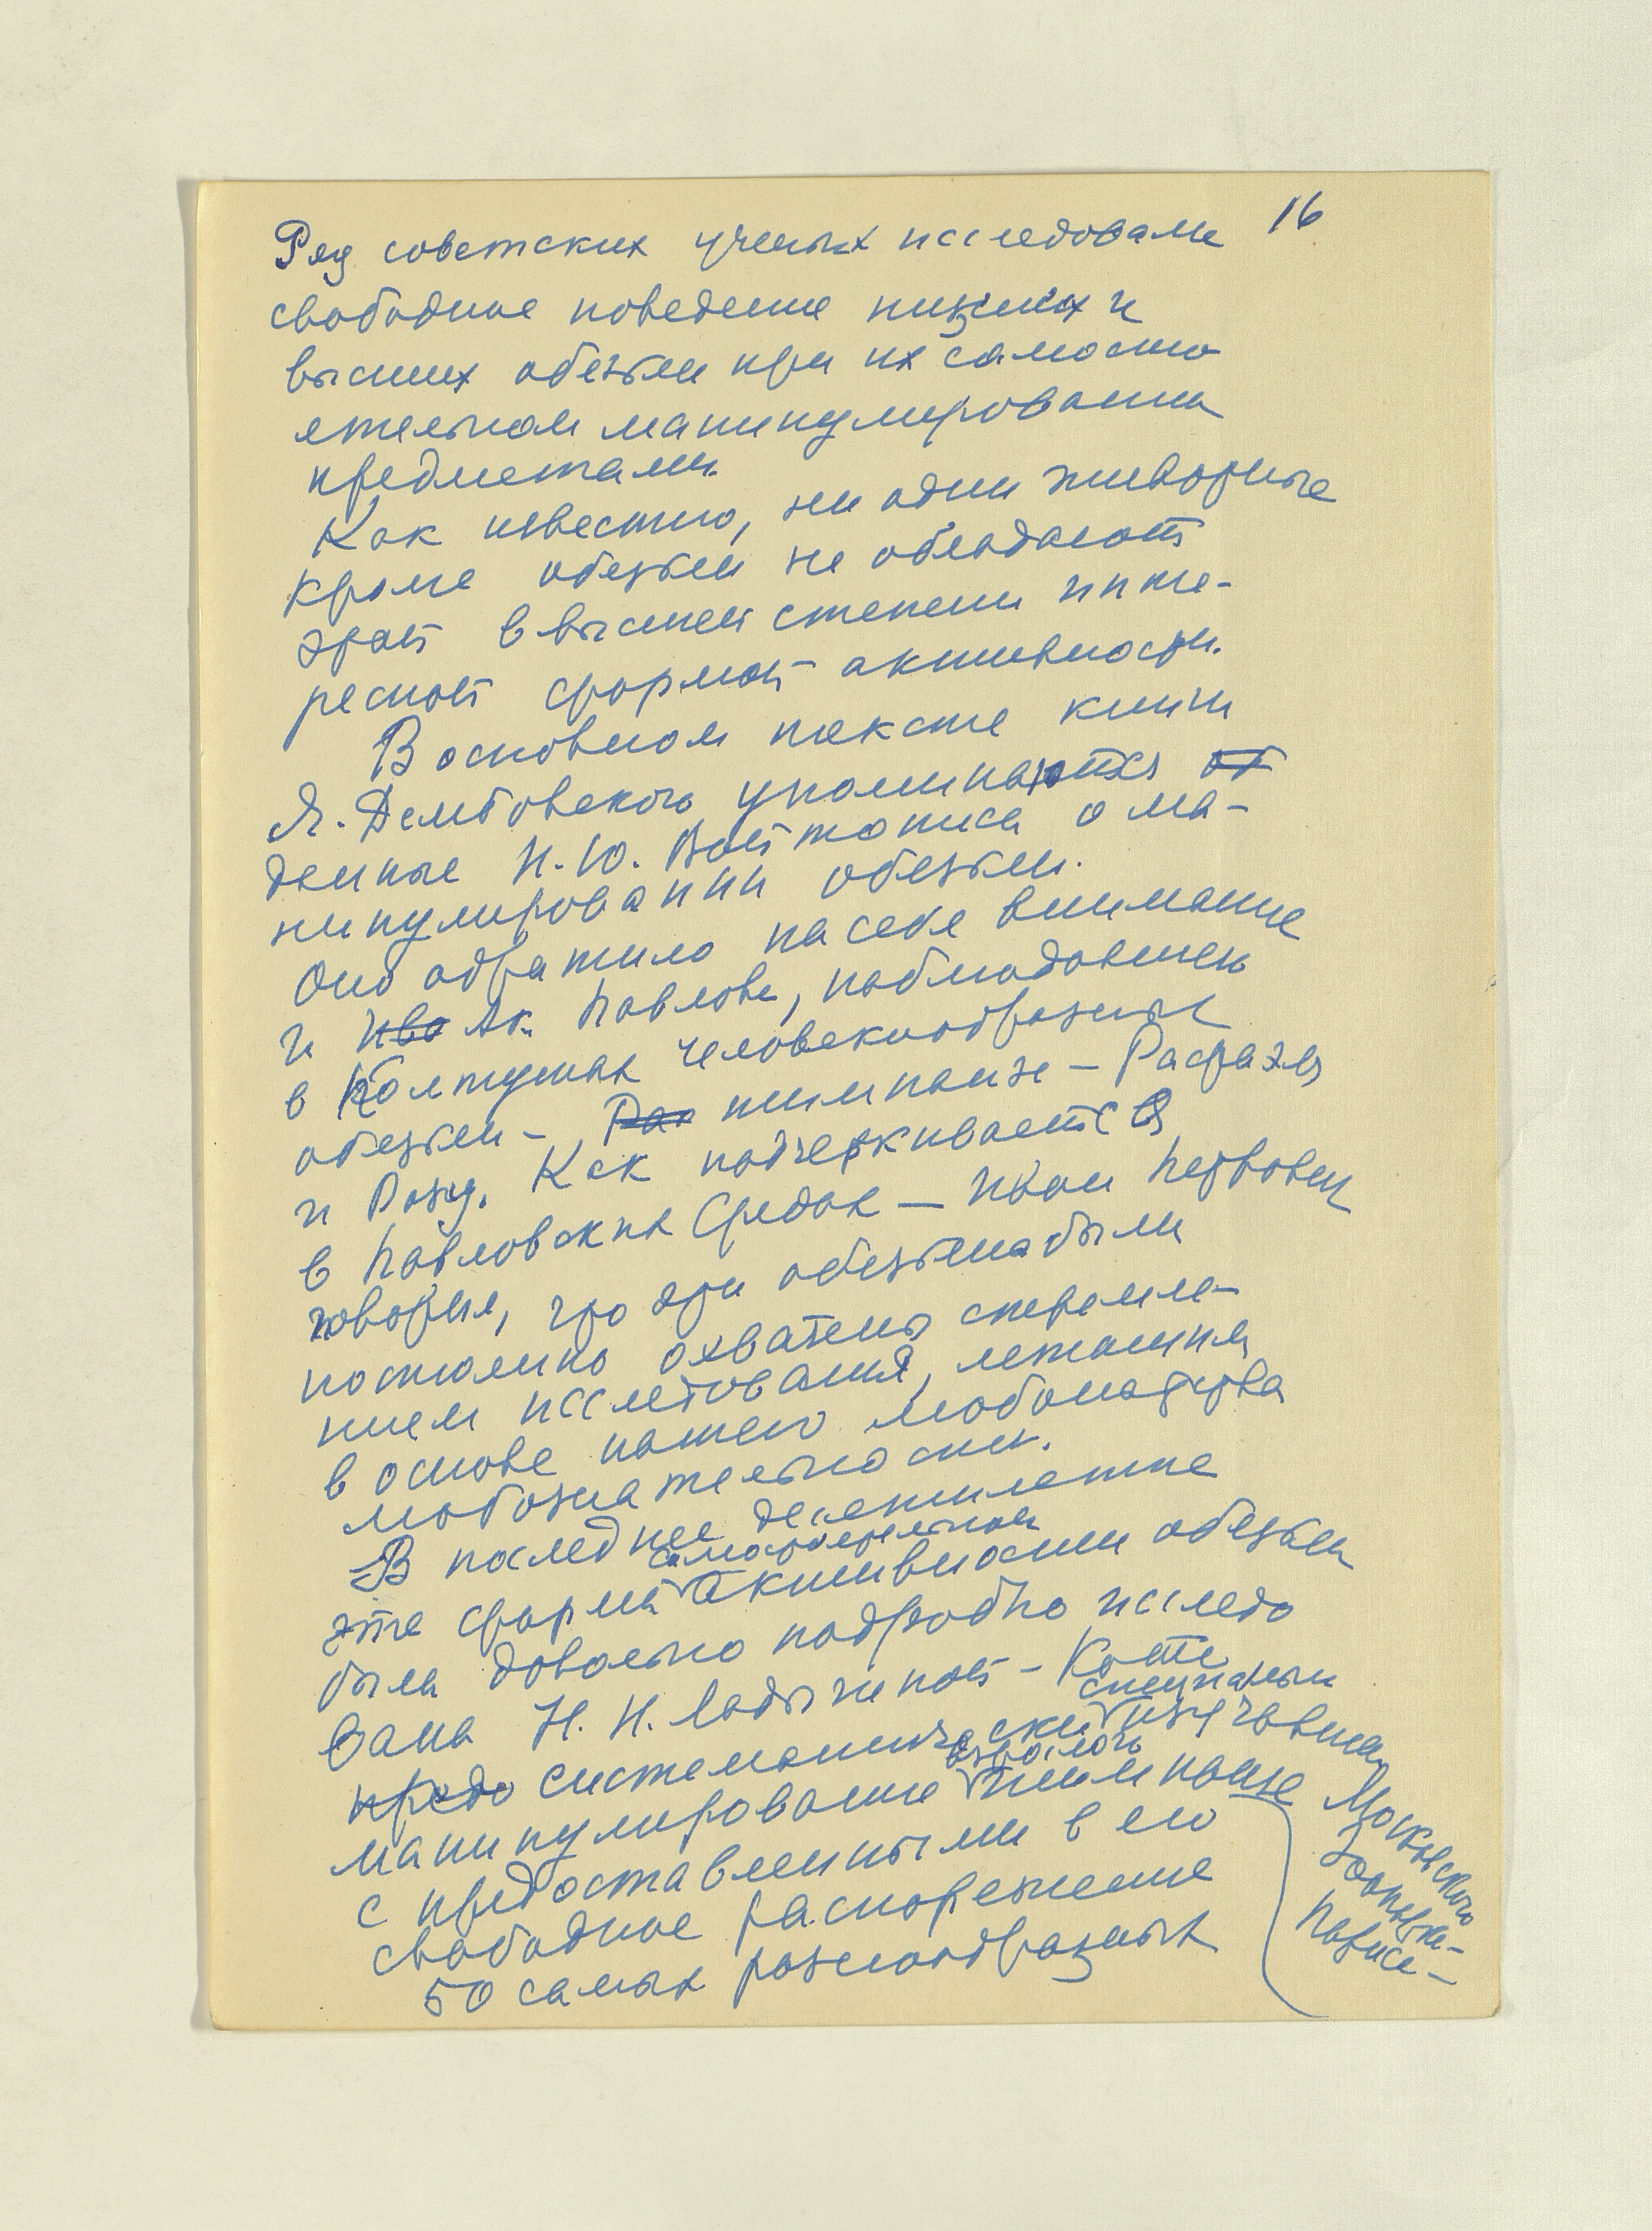 16
Ряд советских ученых исследовали
свободное поведение низших и
высших обезьян при их самосто
ятельном манипулировании
предметами.
Как известно, ни одни животные
кроме обезьян не обладают
этой в высшей степени инте-
ресной формой активности.
В основном тексте книги
Я. Дембовского упоминаются
данные Н. Ю. Войтониса о ма-
нипулировании обезьян.
Оно обратило на себя внимание
и Ак. Павлова, наблюдавшего
в Колтушах человекообразных
обезьян – шимпанзе – Рафаэля
и Розу. Как подчеркивается
в Павловских Средах – Иван Петрович
говорил, что эти обезьяны были
постоянно охвачены стремле-
нием исследования, лежащим
в основе нашего
любознательности.
В последнее десятилетие
самостоятельной
эта форма активности обезьян
была довольно подробно исследо
вана Н. Н. Ладыгиной – Котс
специально
систематически изучавшей
взрослого
манипулирование шимпанзе
Московского
Зоопарка
Париса
с предоставленными в его
свободное распоряжение
50 самых разнообразных